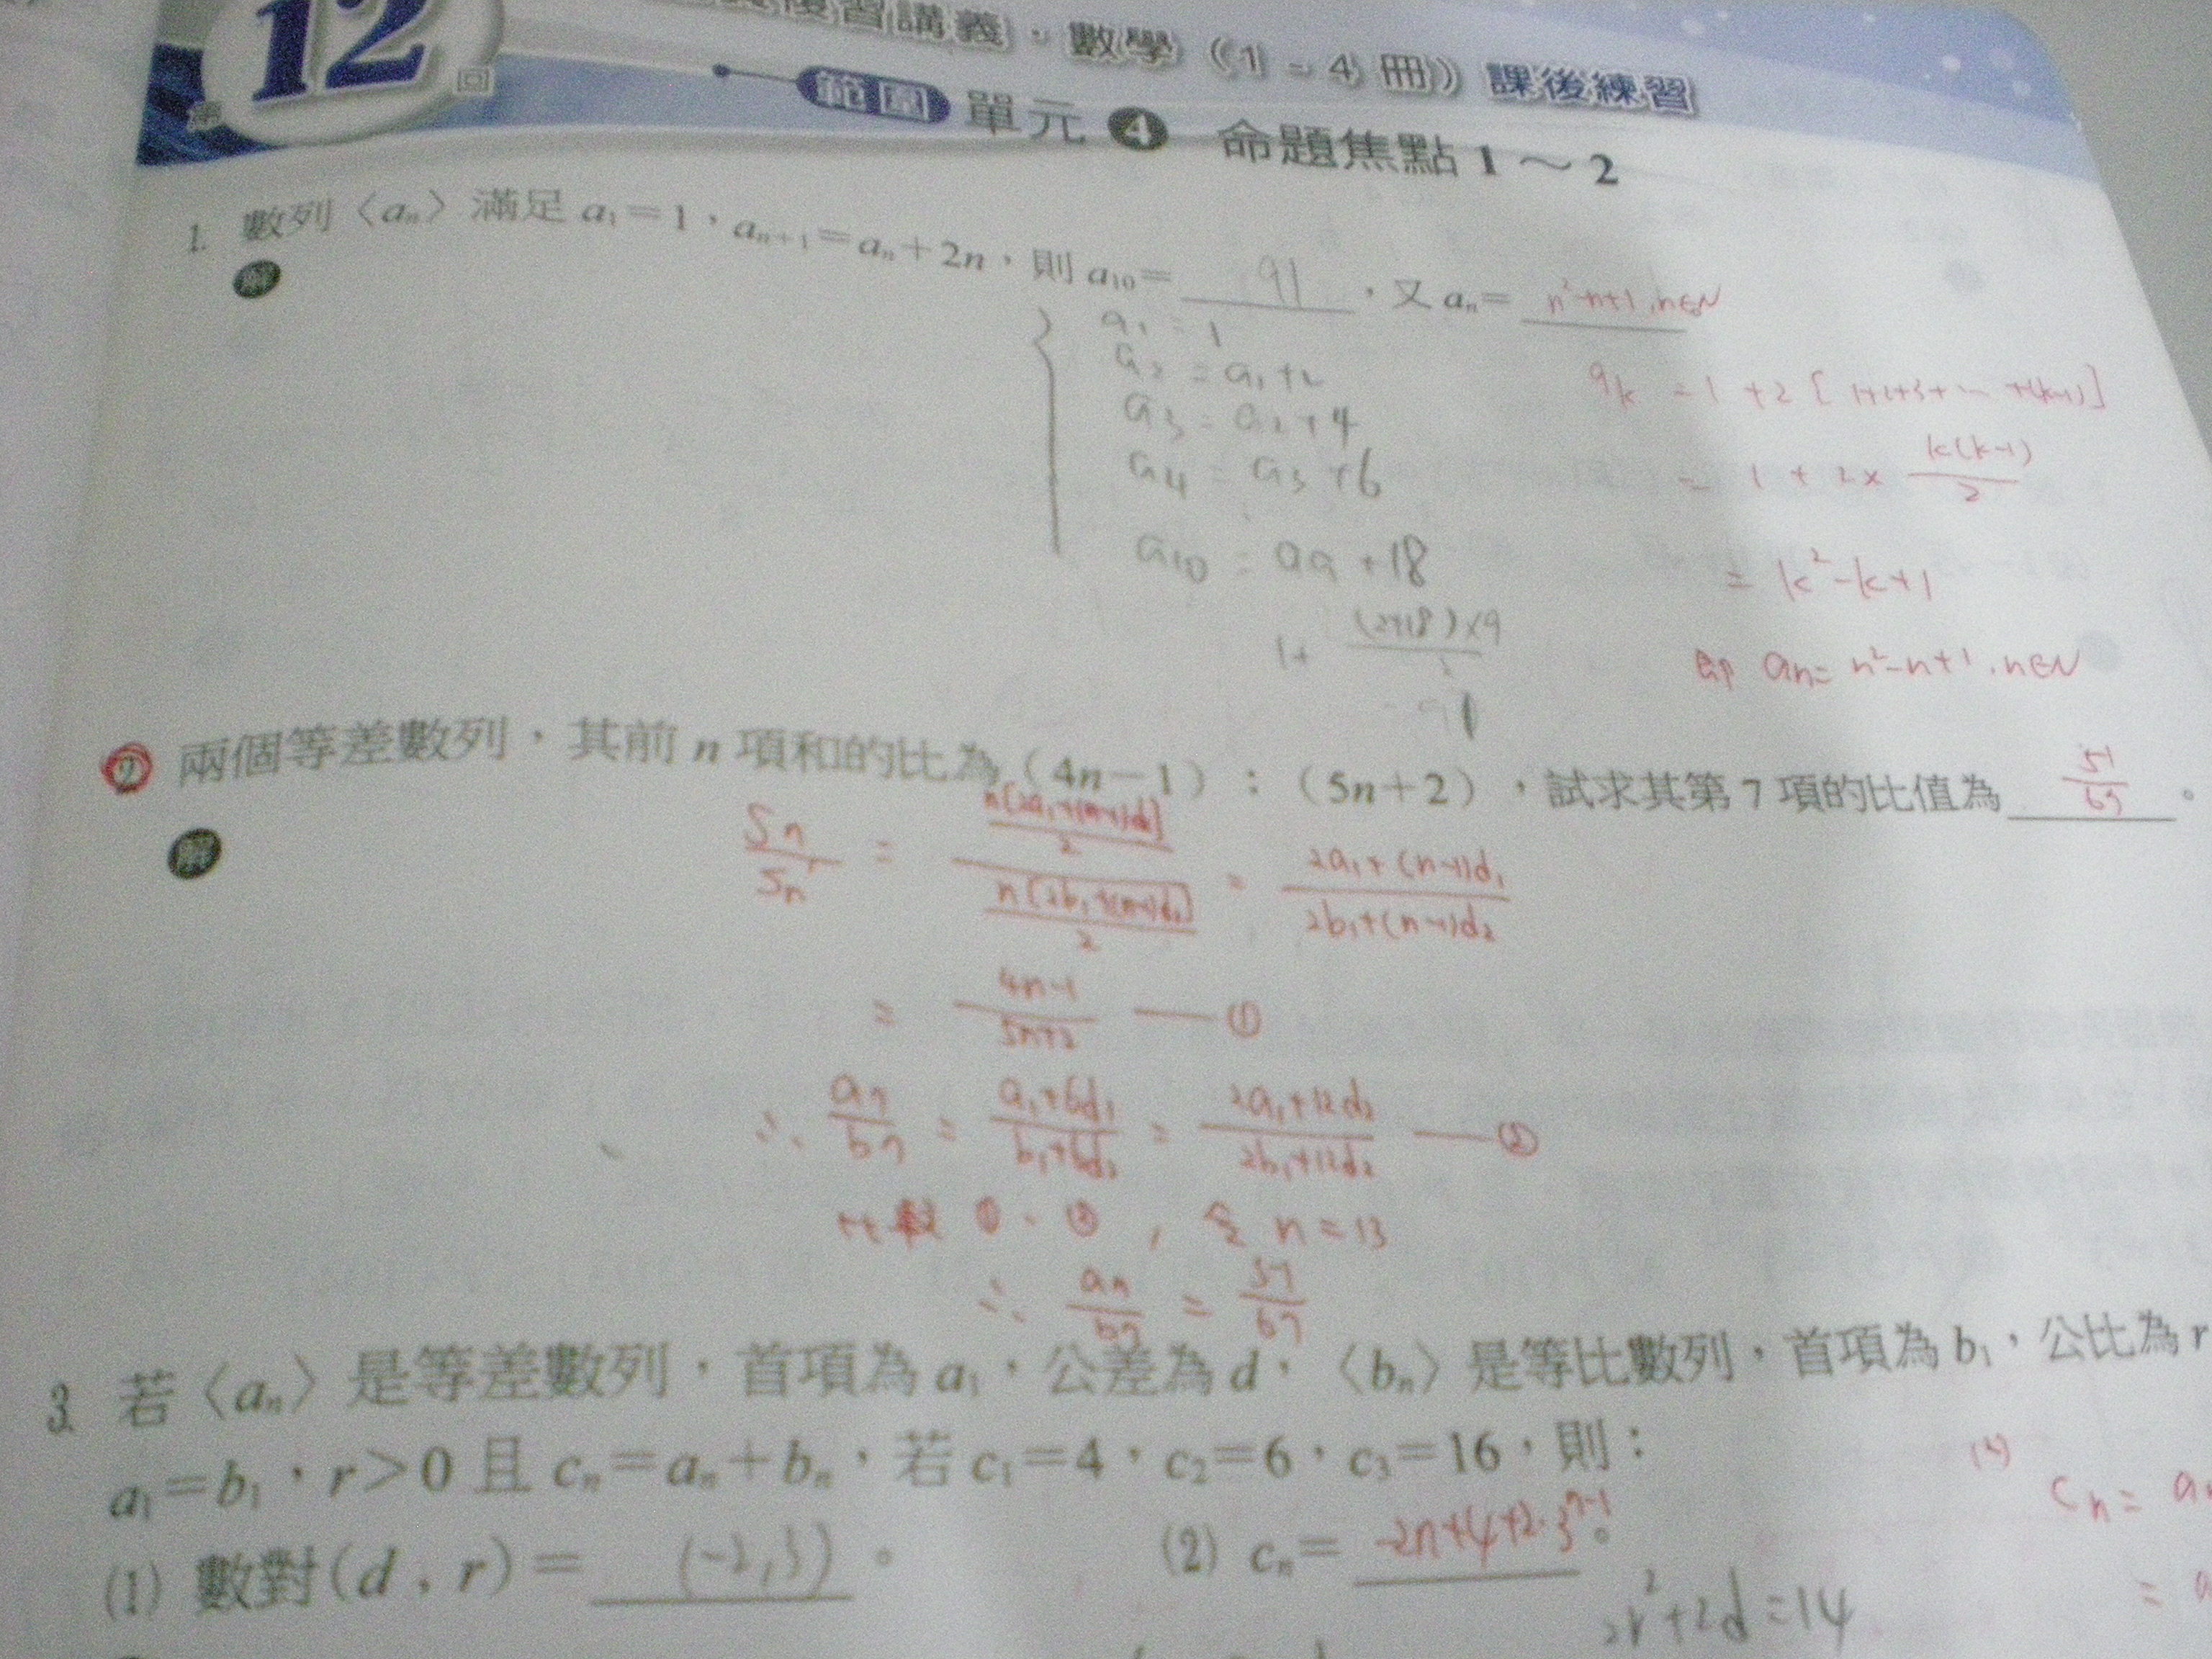 第12回
複習講義．數學（1－4冊）課後練習
範圍 單元4 命題焦點1～2
1. 數列〈aₙ〉滿足 a₁＝1，aₙ₊₁＝aₙ＋2n，則 a₁₀＝ 91 ，又 aₙ＝ n²-n+1, n∈N
解
a₁ = 1
a₂ = a₁+2
a₃ = a₂+4
a₄ = a₃+6
a₁₀ = a₉+18
1+ (2+18)×9/2
91
aₖ = 1+2[1+2+3+…+(k-1)]
= 1+2× k(k-1)/2
= k²-k+1
即 aₙ= n²-n+1, n∈N
2 兩個等差數列，其前 n 項和的比為（4n－1）：（5n＋2），試求其第 7 項的比值為 51/67 。
解
Sₙ/Sₙ' = (n[2a₁+(n-1)d₁]/2)/(n[2b₁+(n-1)d₂]/2) = (2a₁+(n-1)d₁)/(2b₁+(n-1)d₂)
= (4n-1)/(5n+2) — ①
∴ a₇/b₇ = (a₁+6d₁)/(b₁+6d₂) = (2a₁+12d₂)/(2b₁+12d₂) — ②
比較 ①、②, 令 n=13
∴ a₇/b₇ = 51/67
3. 若〈aₙ〉是等差數列，首項為 a₁，公差為 d，〈bₙ〉是等比數列，首項為 b₁，公比為 r
a₁＝b₁，r＞0 且 cₙ＝aₙ＋bₙ，若 c₁＝4，c₂＝6，c₃＝16，則：
(1) 數對(d , r)＝ (-2,3) 。
(2) cₙ＝ -2n+4+2·3ⁿ⁻¹ 。
(2) Cₙ=
2r²+2d=14